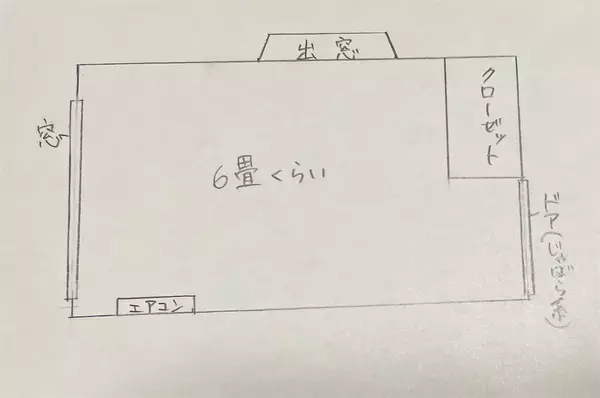 出窓
クローゼット
窓
6畳くらい
ドア
エアコン